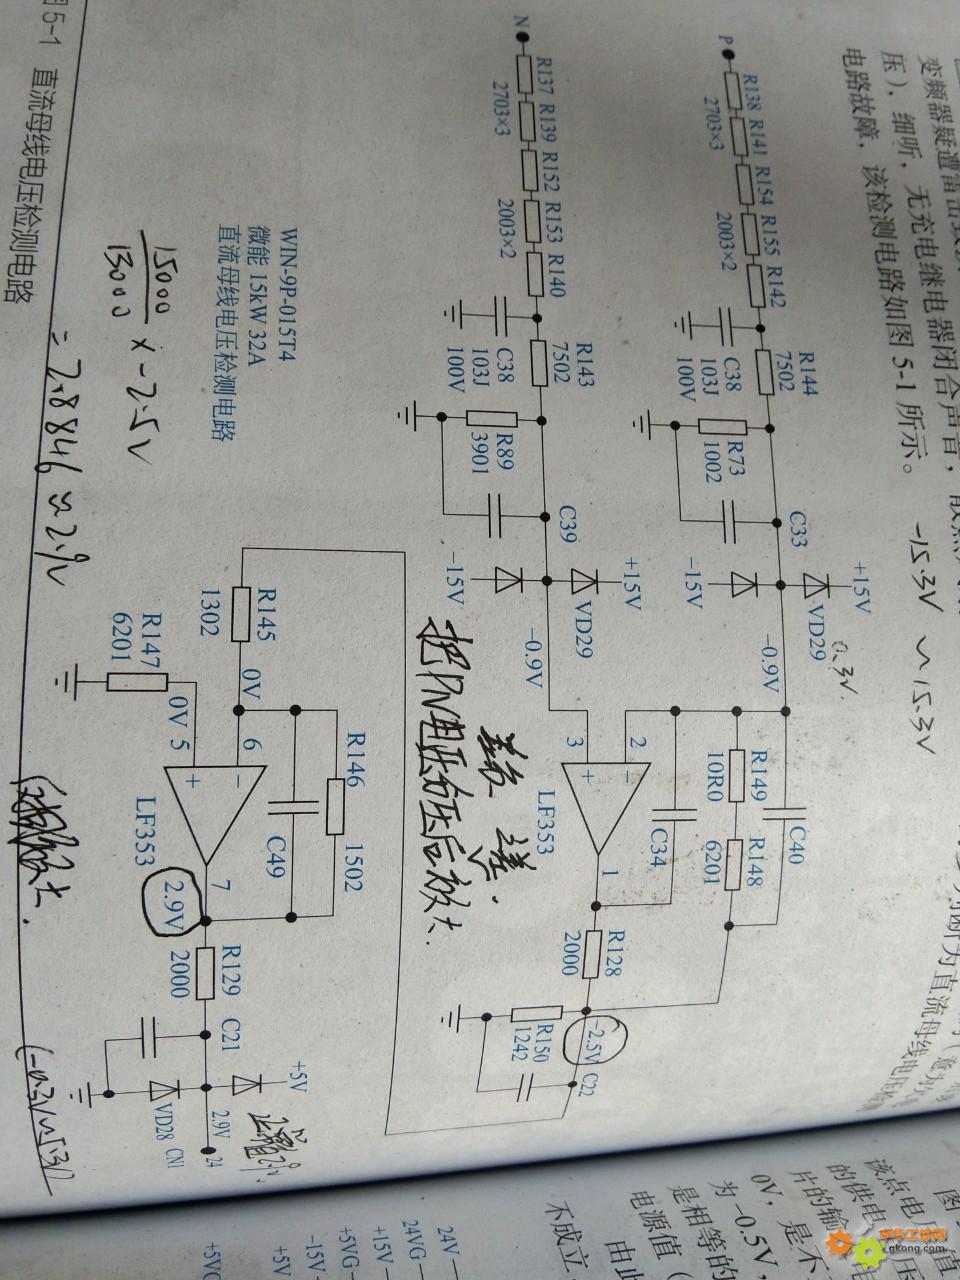 变频器疑遭雷击
压），细听，无充电继电器闭合声音，
电路故障，该检测电路如图 5-1 所示。
判断为直流母线电压检测
-15.3V ~ 15.3V
P
R138 R141 R154 R155 R142
2703×3
2003×2
C38
103J
100V
R144
7502
R73
1002
C33
+15V
-15V
VD29
0.3V.
-0.9V
R149
10R0
R148
6201
C40
N
R137 R139 R152 R153 R140
2703×3
2003×2
C38
103J
100V
R143
7502
R89
3901
C39
+15V
-15V
VD29
-0.9V
2
3
-
+
LF353
1
C34
R128
2000
-2.5V
C22
R150
1242
差
把PN电压分压后放大.
WIN-9P-015T4
微能 15kW 32A
直流母线电压检测电路
R145
1302
0V
6
0V
5
R147
6201
-
+
LF353
7
2.9V
C49
R146
1502
R129
2000
C21
+5V
VD28
2.9V
24
CN1
15000
13000
× -2.5V
= 2.8846 ≈ 2.9V
图 5-1 直流母线电压检测电路
24V
24VG
+15V
+5VG
-15V
+5V
+5VG
该点电压值
的供电
片的输
0V，是不
为 -0.5V
是相等的
电源值（
由此
不成立
中华工控网
gkong.com